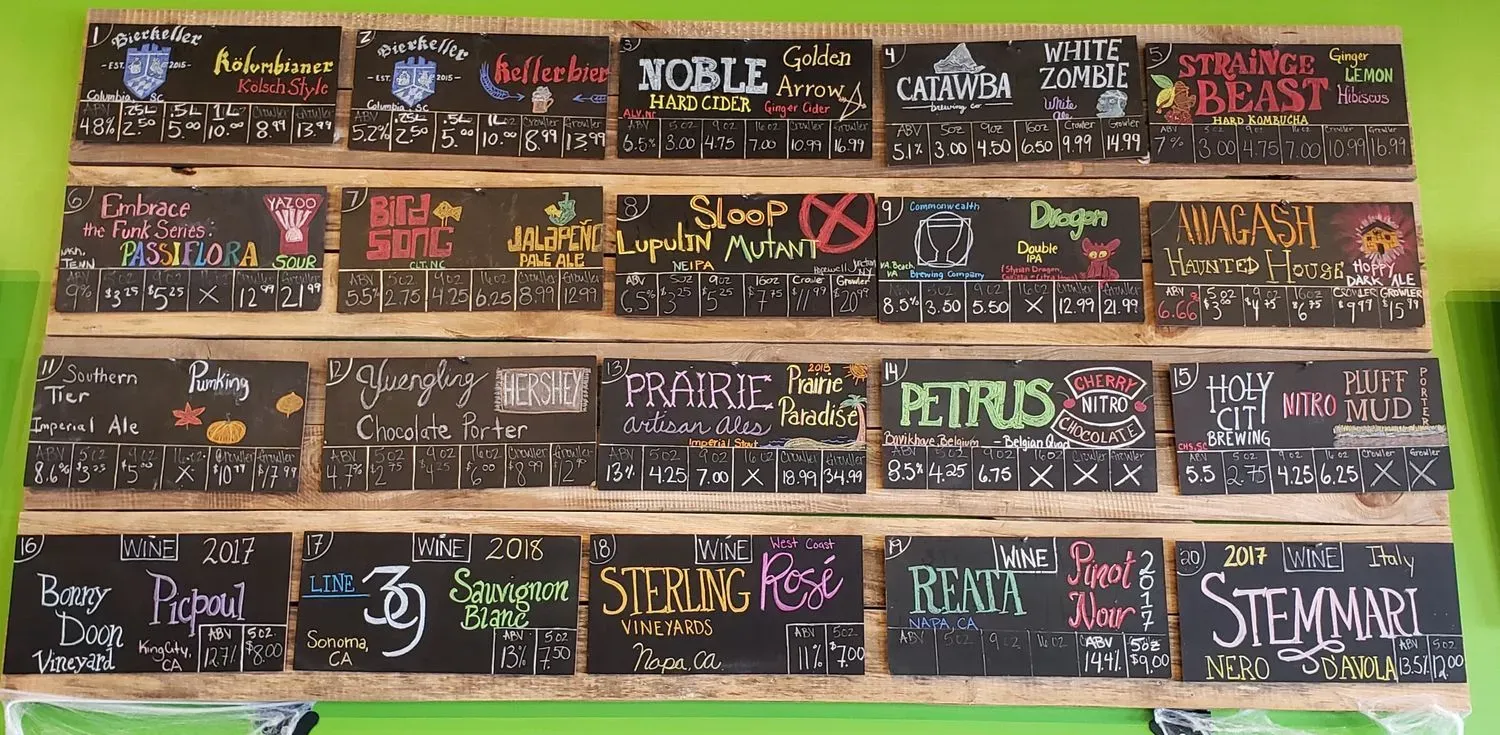 1 Bierkeller
-EST. 2015-
Kölumbianer
Kölsch Style
Columbia, SC
ABV .25L .5L 1L Crowler Growler
4.8% 2.50 5.00 10.00 8.99 13.99
2 Bierkeller
-EST. 2015-
Kellerbier
Columbia, SC
ABV .25L .5L 1L Crowler Growler
5.2% 2.50 5.00 10.00 8.99 13.99
3 NOBLE
HARD CIDER
Golden
Arrow
Ginger Cider
ABV 5oz 9oz 16oz Crowler Growler
6.5% 3.00 4.75 7.00 10.99 16.99
4 CATAWBA
brewing co
WHITE
ZOMBIE
White
Ale
ABV 5oz 9oz 16oz Crowler Growler
5.1% 3.00 4.50 6.50 9.99 14.99
5 STRAINGE
BEAST
HARD KOMBUCHA
Ginger
LEMON
Hibiscus
ABV 5oz 9oz 16oz Crowler Growler
7% 3.00 4.75 7.00 10.99 16.99
6 Embrace
the Funk Series:
PASSIFLORA
YAZOO
SOUR
TENN
ABV 5oz 9oz 16oz Crowler Growler
9% $3.25 $5.25 X 12.99 21.99
7 BIRD
SONG
CLT, NC
JALAPEÑO
PALE ALE
ABV 5oz 9oz 16oz Crowler Growler
5.5% 2.75 4.25 6.25 8.99 12.99
8 SLOOP
LUPULIN MUTANT
NEIPA
Hopewell Junction
NY
ABV 5oz 9oz 16oz Crowler Growler
6.5% $3.25 $5.25 $7.75 $11.99 $20.99
9 Commonwealth
Brewing Company
VA. Beach
VA
Dragon
Double
IPA
ABV 5oz 9oz 16oz Crowler Growler
8.5% 3.50 5.50 X 12.99 21.99
AllAGASH
HAUNTED HOUSE
HOPPY
DARK ALE
ABV 5oz 9oz 16oz CROWLER GROWLER
6.66% $3.00 $4.75 $6.75 $9.99 $15.99
11 Southern
Tier
Pumking
Imperial Ale
ABV 5oz 9oz 16oz Crowler Growler
8.6% $3.25 $5.00 X $10.99 $17.99
12 Yuengling
HERSHEY
Chocolate Porter
ABV 5oz 9oz 16oz Crowler Growler
4.7% $2.75 $4.25 $6.00 $8.99
13 PRAIRIE
Artisan Ales
2018
Prairie
Paradise
Imperial Stout
ABV 5oz 9oz 16oz Crowler Growler
13% 4.25 7.00 X 18.99 34.99
14 PETRUS
CHERRY
NITRO
CHOCOLATE
Bavikhove, Belgium -Belgian Quad
ABV 5oz 9oz 16oz Crowler Growler
8.5% 4.25 6.75 X X X
15 HOLY
CITY
BREWING
NITRO
PLUFF
MUD
PORTER
CHS, SC
ABV 5oz 9oz 16oz Crowler Growler
5.5 2.75 4.25 6.25 X X
16 WINE 2017
Bonny
Doon
Vineyard
Picpoul
King City,
CA
ABV 5oz
12.7% $8.00
17 WINE 2018
LINE 39
Sauvignon
Blanc
Sonoma,
CA
ABV 5oz
13% 7.50
18 WINE West Coast
STERLING
VINEYARDS
Rosé
Napa, Ca.
ABV 5oz
11% $7.00
19 WINE
REATA
NAPA, CA.
Pinot
Noir
2017
ABV 5oz 9oz 16oz ABV 5oz
14.4% $9.00
20 2017 WINE Italy
STEMMARI
NERO D'AVOLA
ABV 5oz
13.5% 12.00